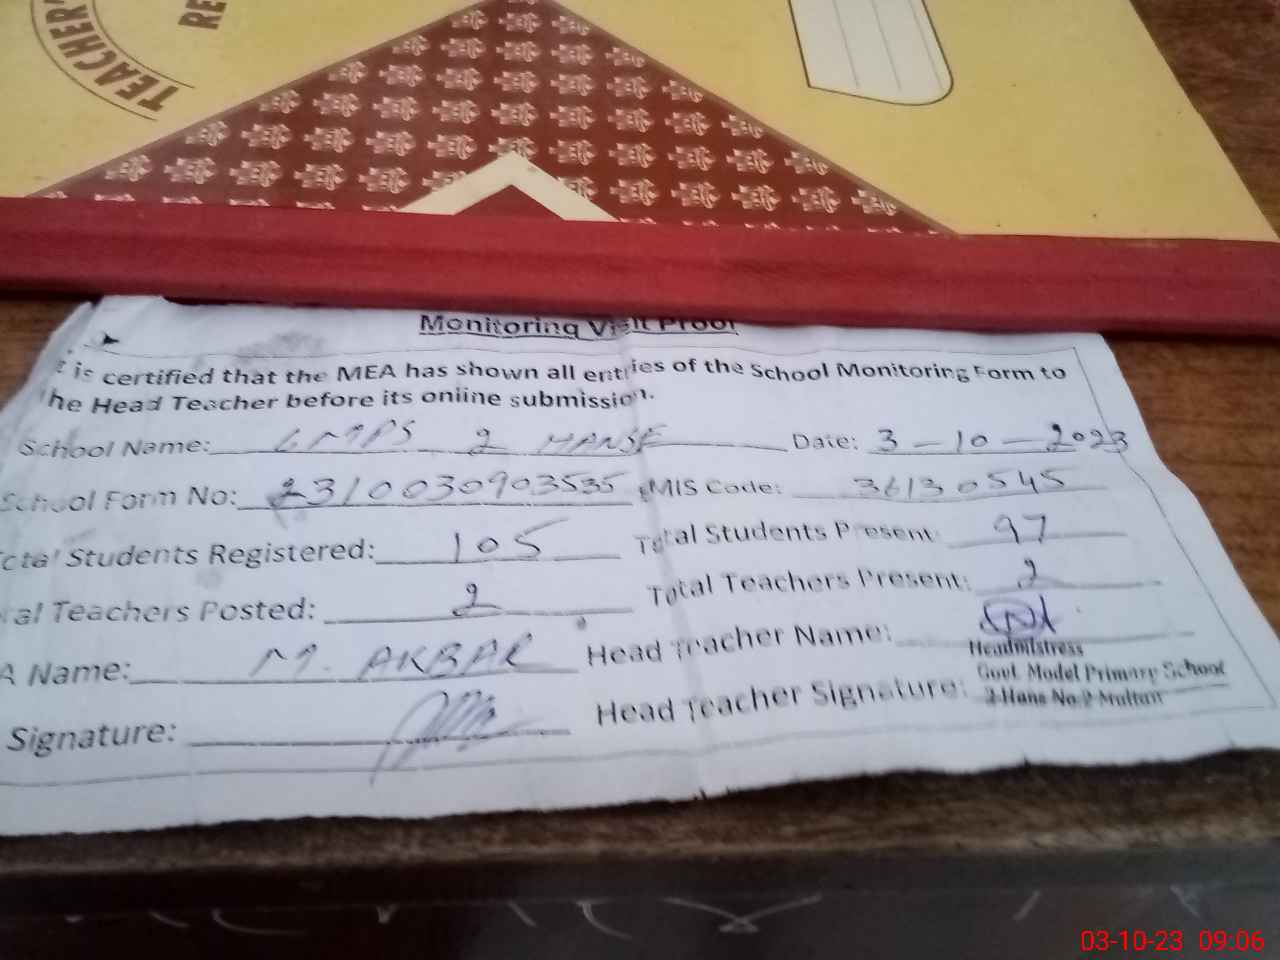 TEACHER'S
RE
Monitoring Visit Proof
t is certified that the MEA has shown all entries of the School Monitoring Form to
he Head Teacher before its online submission.
School Name: GMPS 2 HANSE Date: 3-10-2023
School Form No: 2310030903535 EMIS Code: 36130545
otal Students Registered: 105 Total Students Present: 97
tal Teachers Posted: 2 Total Teachers Present: 2
A Name: M. AKBAR Head Teacher Name:
Headmistress
Govt. Model Primary School
2-Hans No.2 Multan
Signature: Head Teacher Signature:
03-10-23 09:06